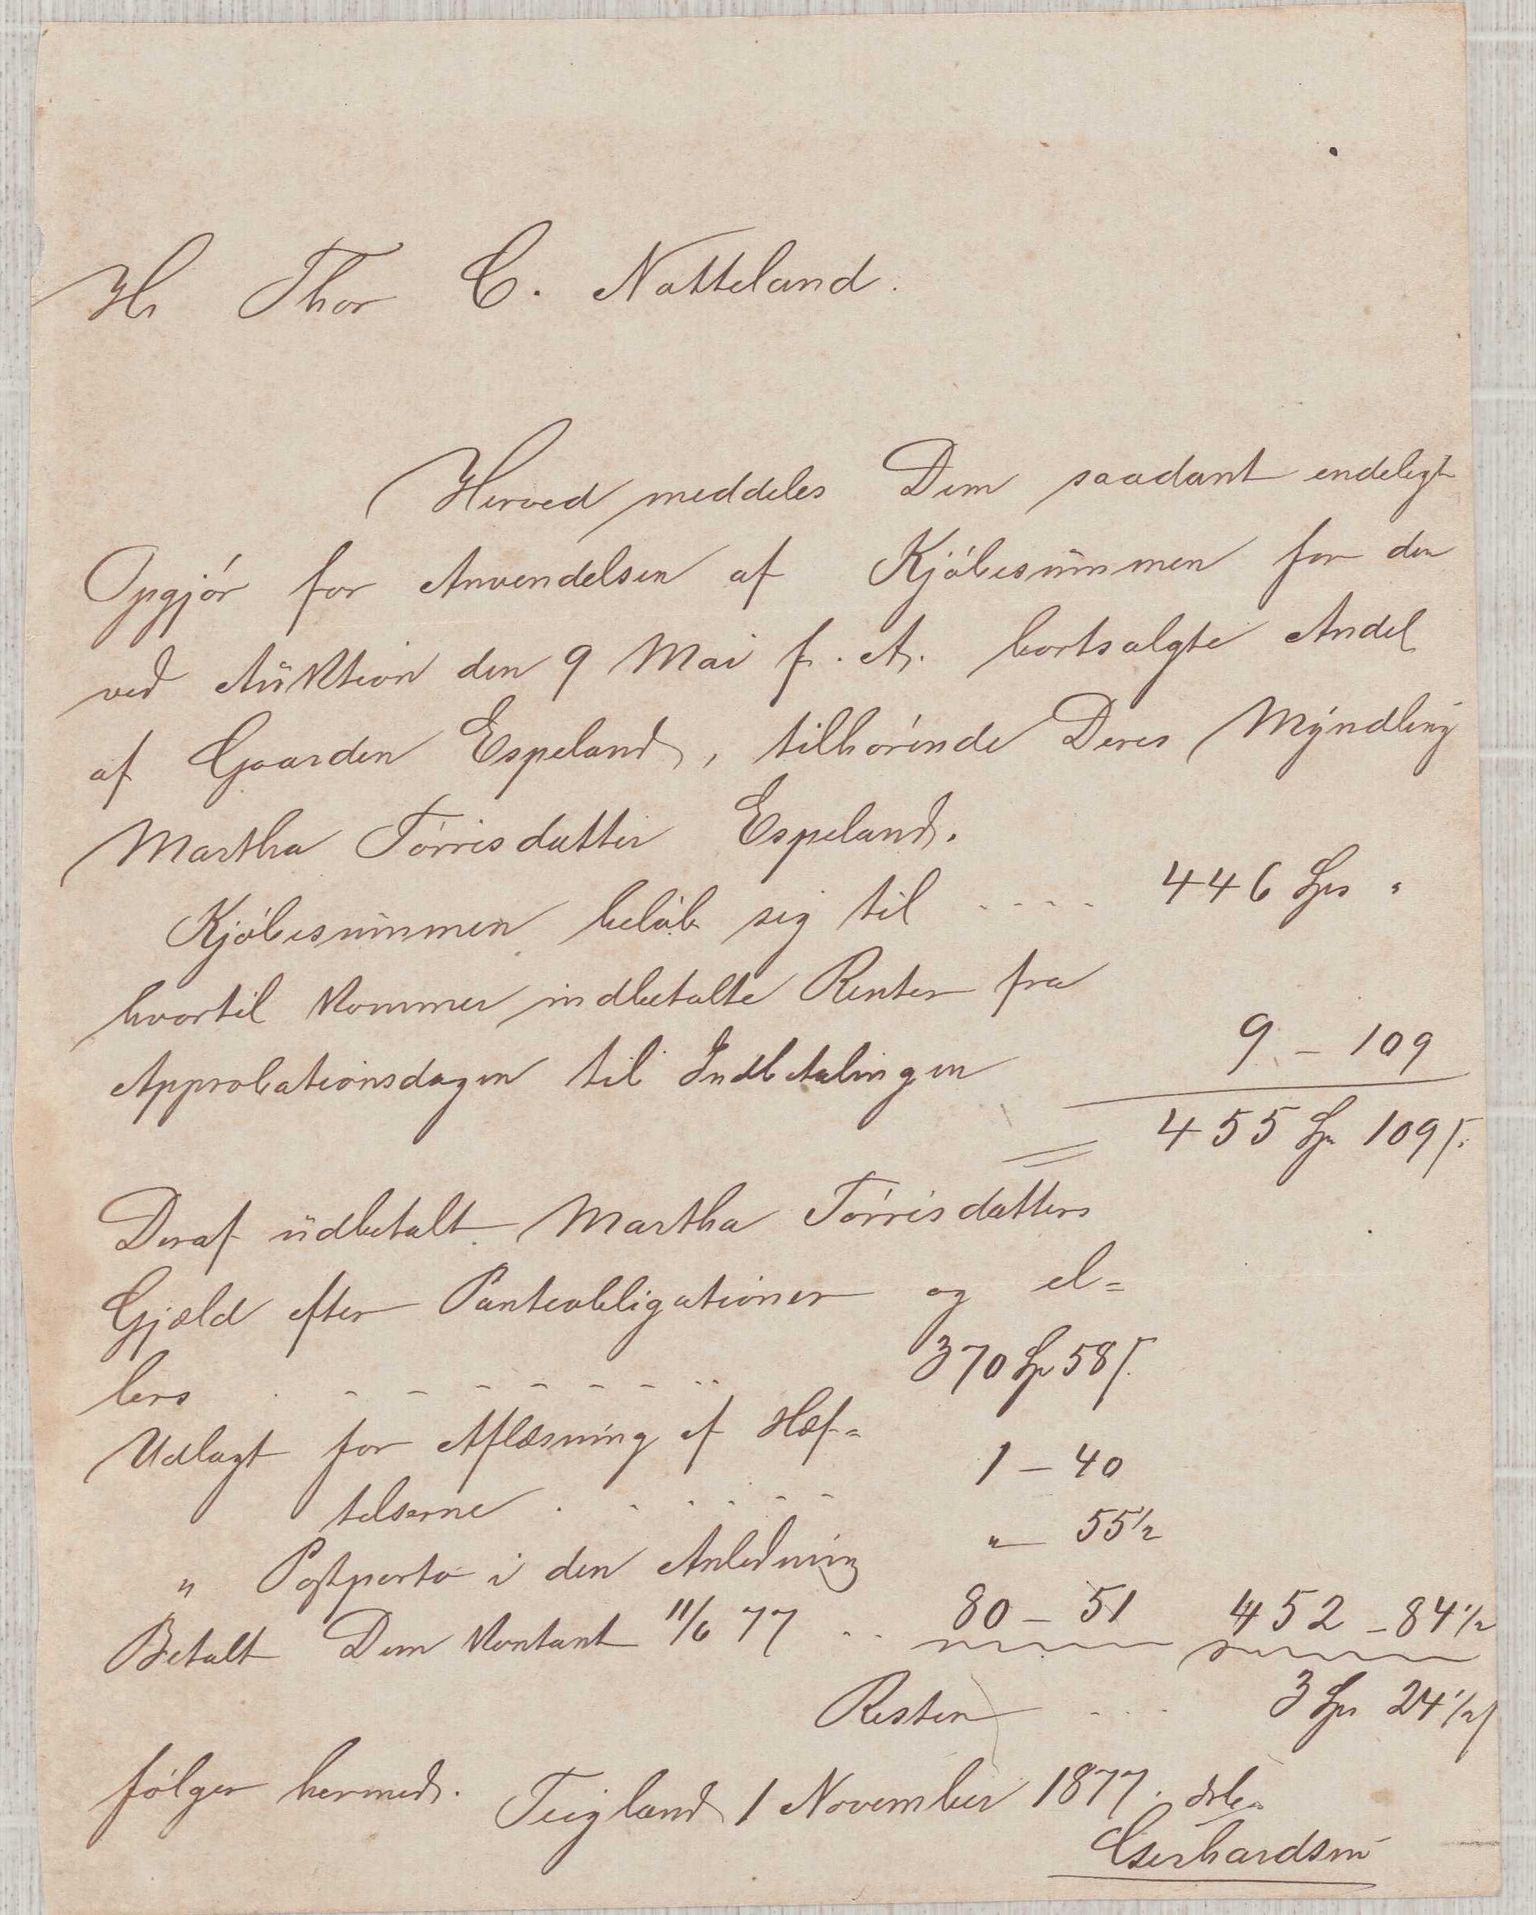 Hr Thor C. Natteland.
Herved meddeles Dem saadant endeligt
Opgjör for Anvendelsen af Kjöbesummen for den
ved Auktion den 9 Mai f. A. bortsolgte Andel
af Gaarden Espeland, tilhörende Deres Myndling
Martha Törrisdatter Espeland.
Kjöbesummen belöb sig til .... 446 Sps "
hvortil kommer indbetalte Renter fra
Approbationsdagen til Indbetalingen 9 - 109
= 455 Sp 109 s.
Deraf udbetalt Martha Törrisdatters
Gjæld efter Panteobligationer og el=
lers . - - - - - - - .. 370 Sp 58 s.
Udlagt for Aflæsning af Hæf=
telserne . - - - - - 1 - 40
" Postporto i den Anledning " - 55 1/2
Betalt Dem kontant 11/6 77 .. 80 - 51 452 - 84 1/2
Resten .... 3 Sps 24 1/2 s
fölger hermed. Teigland 1 November 1877.
Gerhardsen